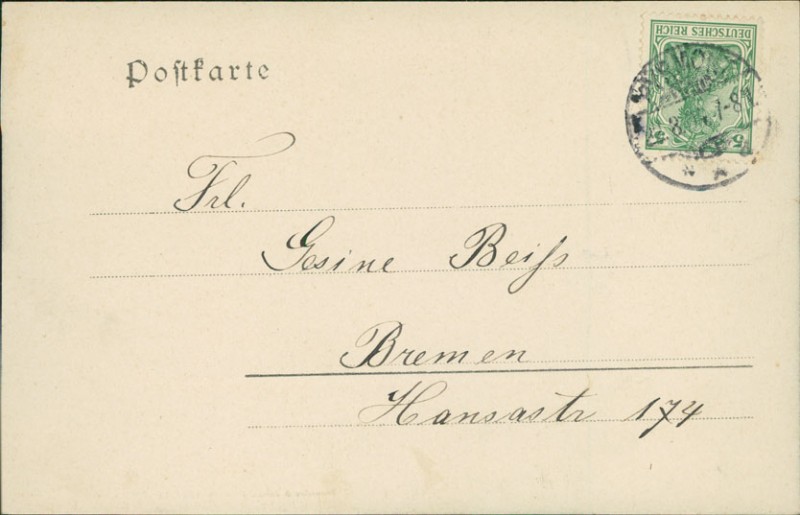 Postkarte
DEUTSCHES REICH
5 5
Frl.
Gesine Beiſs
Bremen
Hansastr 174